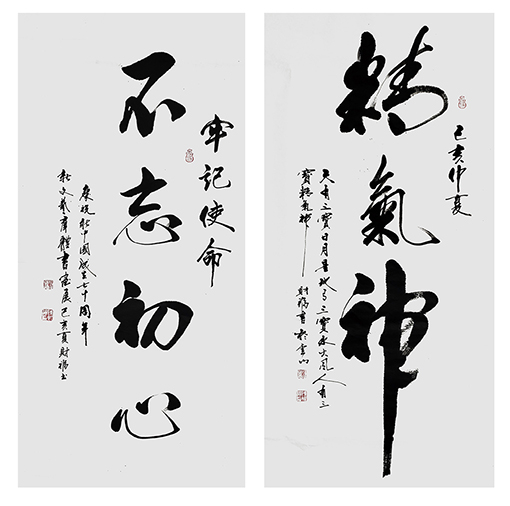 不忘初心
牢記使命
庆祝新中國成立七十周年
新文藝群體書畫展己亥夏財書
精氣神
己亥仲夏
天有三寶日月星地有三寶水火風人有三
寶精氣神
財書於雲山